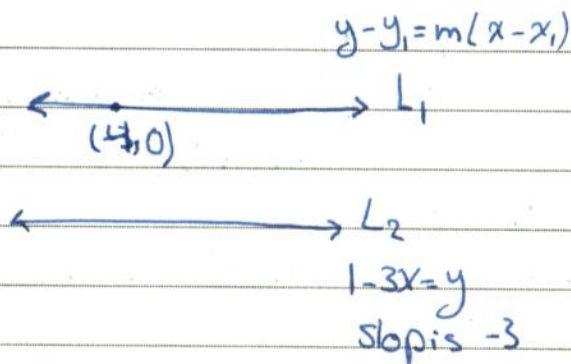 y-y₁=m(x-x₁)
L₁
(4,0)
L₂
1-3x=y
Slop is -3